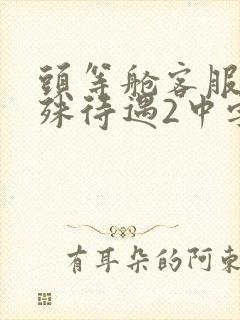 頭等舱客服
殊待遇2中字
有耳朵的阿東